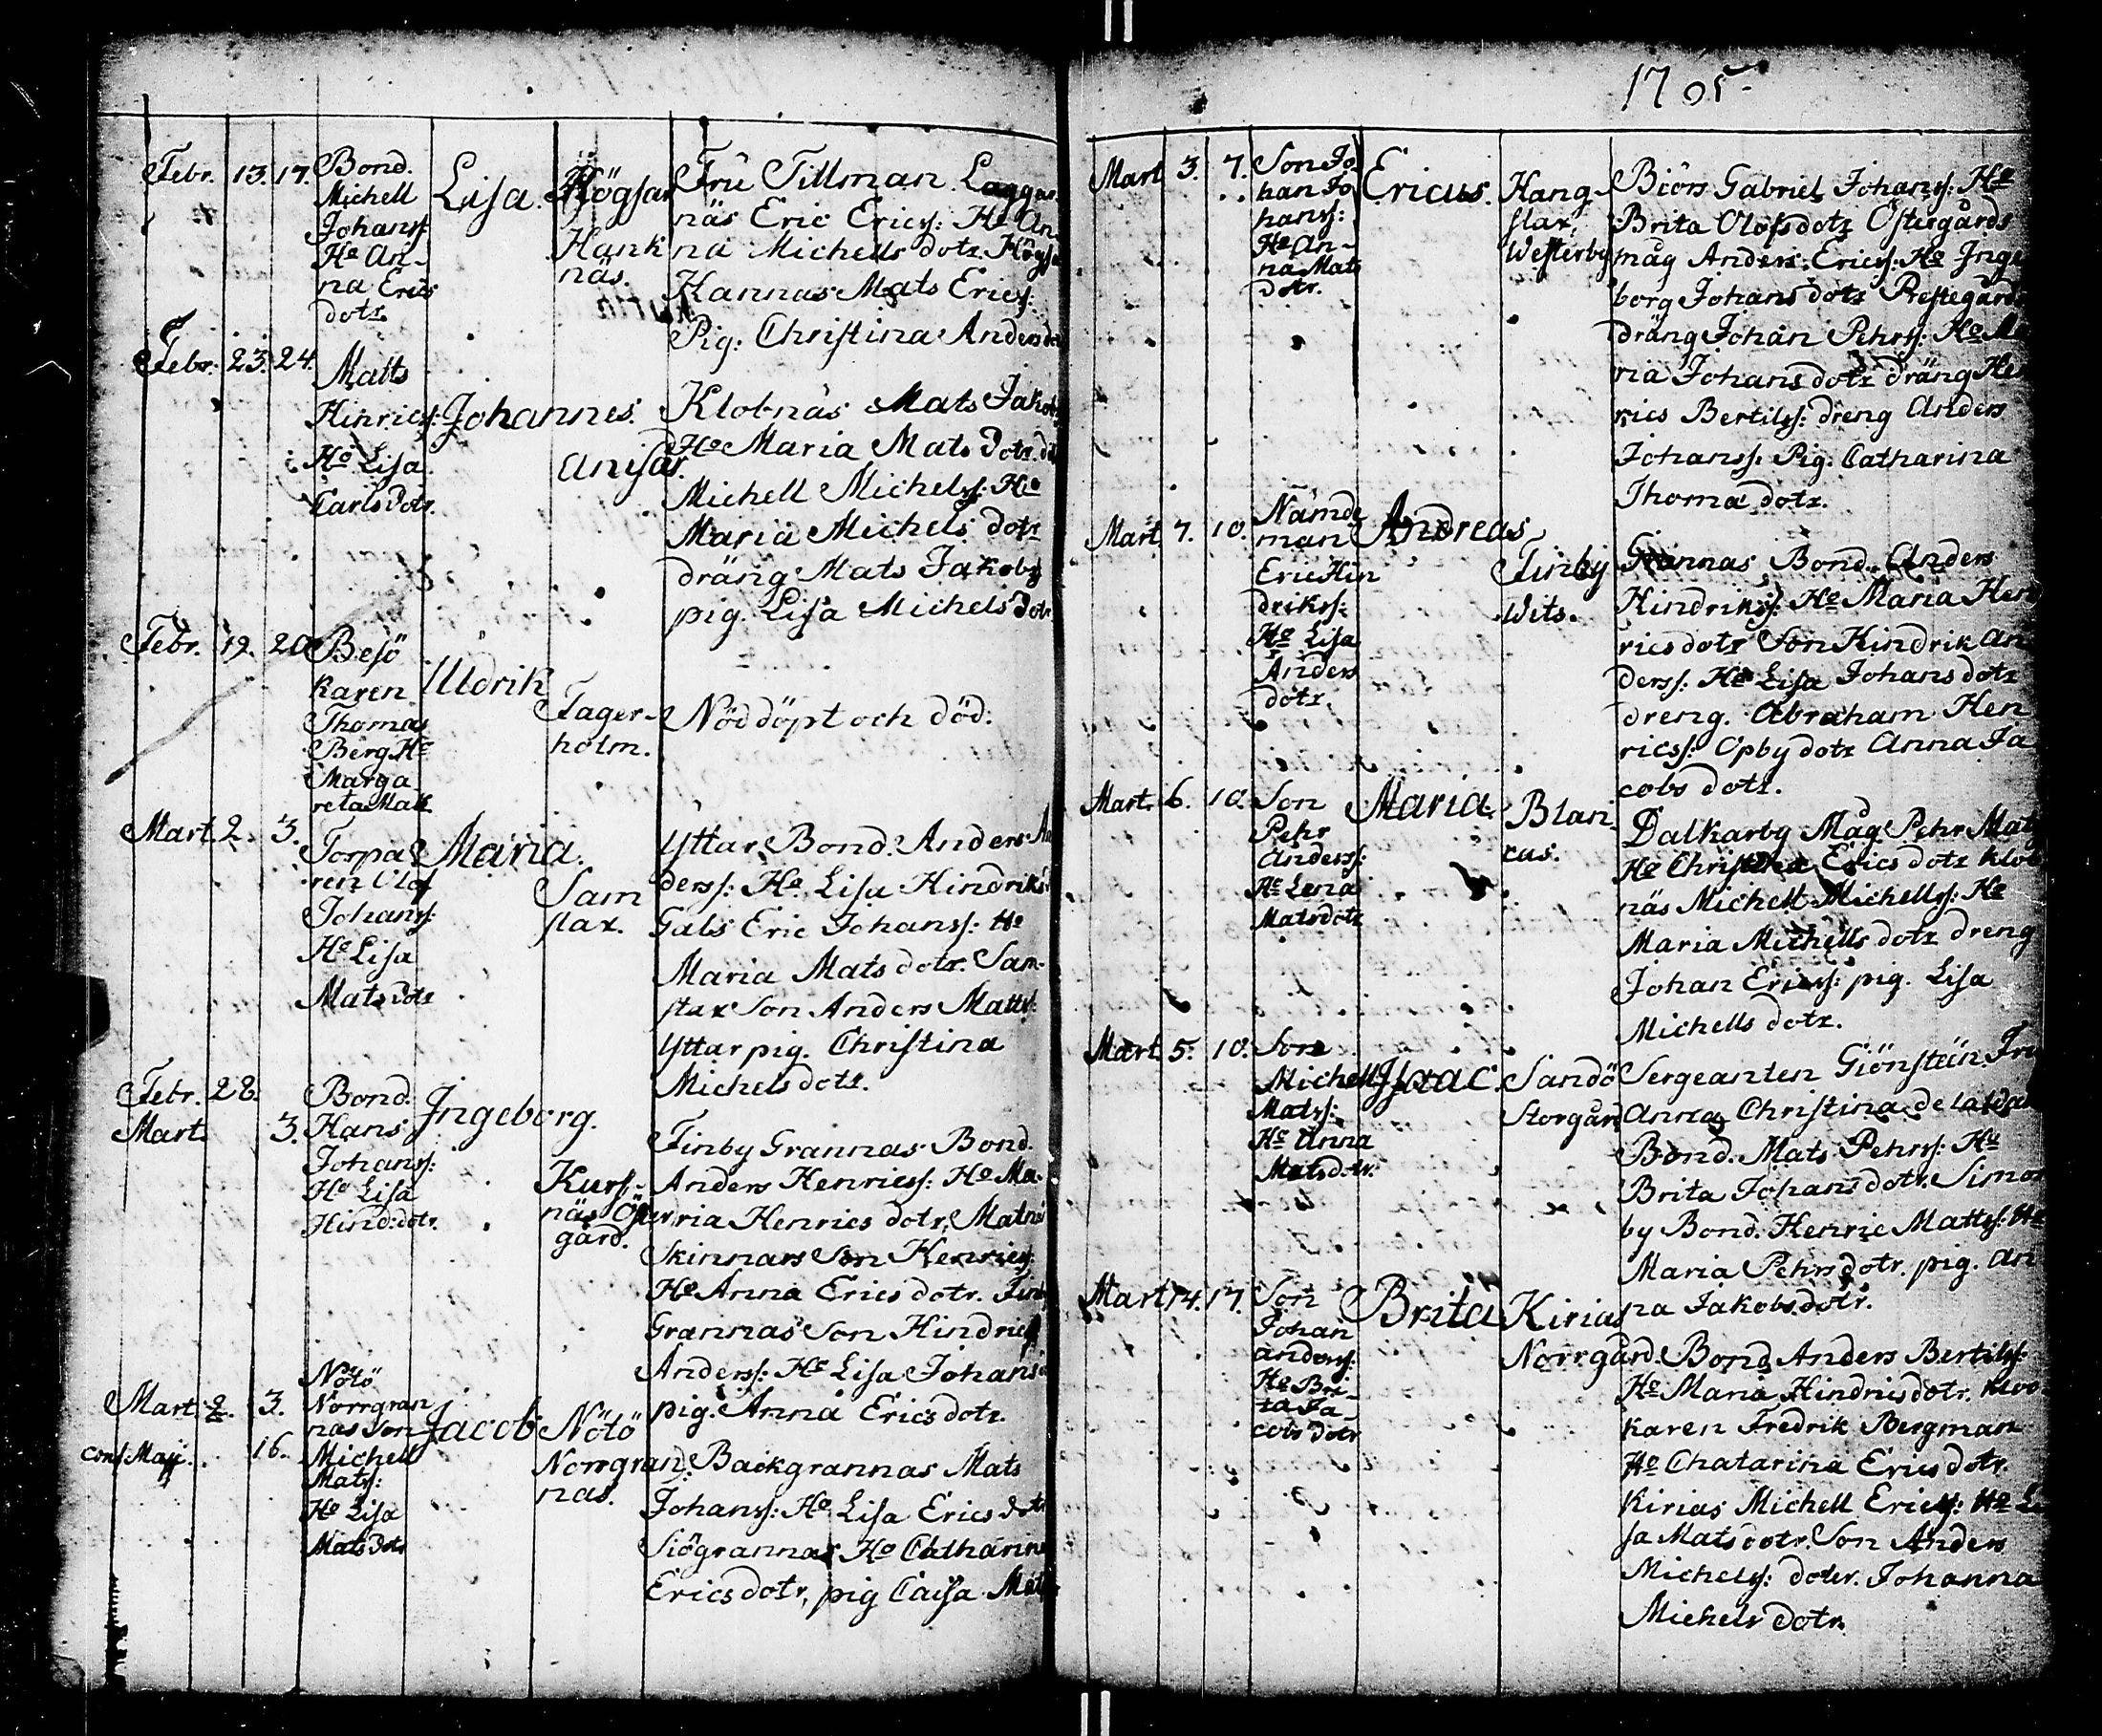 1705
Febr. 13. 17. Bond.
Michell
Johanss:
Ho An-
na Erics
dotr.
Lisa.
Högsar
Hank
näs.
Fru Tillman. Laggar
näs Eric Ericss: Ho An-
na Michells dotr. Högsa
Hannas Mats Ericss:
Pig: Christina Anders do
Febr. 23. 24. Matts
Hinricss:
Ho Lisa
Carls dotr.
Johannes.
Ansar.
Klobnäs Mats Jakobs
Ho Maria Mats dotr. do
Michell Michelss: Ho
Maria Michels dotr
dräng Mats Jakobss
pig. Lisa Michels dotr
Febr. 19. 20. Besö
karen
Thomas
Berg Ho
Marga
reta Matt
Uldrik
Fager-
holm.
Nöd döpt och död.
Mart. 2. 3. Torpa
ren Olof
Johanss:
Ho Lisa
Mats dotr
Maria.
Sam
slax.
Yttar Bond. Anders An
derss: Ho Lisa Hindriks
Gabs Eric Johanss: Ho
Maria Mats dotr. Sam-
slax Son Anders Mattss:
Yttar pig. Christina
Michels dotr.
Febr. 28. Bond.
Mart. 3. Hans
Johanss:
Ho Lisa
Hind: dotr.
Ingeborg.
Kurs-
näs Öster
gård.
Finby Grannas Bond.
Anders Henricss: Ho Ma-
ria Henrics dotr, Matnä
Skinnars Son Henricss:
Ho Anna Erics dotr. Finb
Grannas Son Hindricss
Anderss: Ho Lisa Johans
pig. Anna Erics dotr.
Mart. 2. 3. Nötö
Norrgran
nas Son
conf Maji. 16. Michell
Matss:
Ho Lisa
Mats dotr
Jacob
Nötö
Norrgran
nas.
Backgrannas Mats
Johanss: Ho Lisa Erics dotr
Siögrannas Ho Catharina
Ericsdotr, pig Caisa Mats
Mart 3. 7. Son Jo
han Jo
hanss:
Ho An-
na Mats
dotr.
Ericus.
Hang-
slax,
Westerby
Biörs Gabriel Johanss: Ho
Brita Olofsdotr Östergårds
måg Anders Ericss: Ho Inge
borg Johans dotr Prestegårds
dräng Johan Pehrss: Ho Ma
ria Johans dotr dräng He
rics Bertilss: dreng Anders
Johanss. Pig. Catharina
Thoma dotr.
Mart 7. 10. Nämde
man
Eric Hin
drikss:
Ho Lisa
Anders
dotr.
Andreas
Finby
Wits.
Grannas Bond. Anders
Hindrikss: Ho Maria Hen
rics dotr Son Hindrik An
derss: Ho Lisa Johans dotr
dreng. Abraham Hen
ricss: Opby dotr Anna Ja
cobs dotr.
Mart. 6. 10. Son
Pehr
Anderss:
Ho Lena
Matsdotr
Maria.
Blan
cas.
Dalkarby Måg Pehr Mats
Ho Christina Erics dotr Klob
näs Michell Michellss: Ho
Maria Michells dotr dreng
Johan Ericss: pig. Lisa
Michells dotr.
Mart 5. 10. Son
Michell
Matss:
Ho Anna
Matsdotr.
Isaac.
Sandö
Storgård
Sergeanten Giönstein. Fru
Anna Christina
Bond. Mats Pehrss: Hu
Brita Johans dotr. Simon
by Bond. Henric Mattss: Ho
Maria Pehrsdotr. pig. An
na Jakobs dotr.
Mart 14. 17. Son
Johan
Anderss:
Ho Bri-
ta Ja-
cobs dotr
Brita
Kirias
Norrgård.
Bond Anders Bertilss:
Ho Maria Hindricsdotr. Kloc
karen Fredrik Bergman
Ho Chatarina Erics dotr.
Kirias Michell Ericss: Ho Li
sa Mats dotr. Son Anders
Michelss: doter. Johanna
Michels dotr.